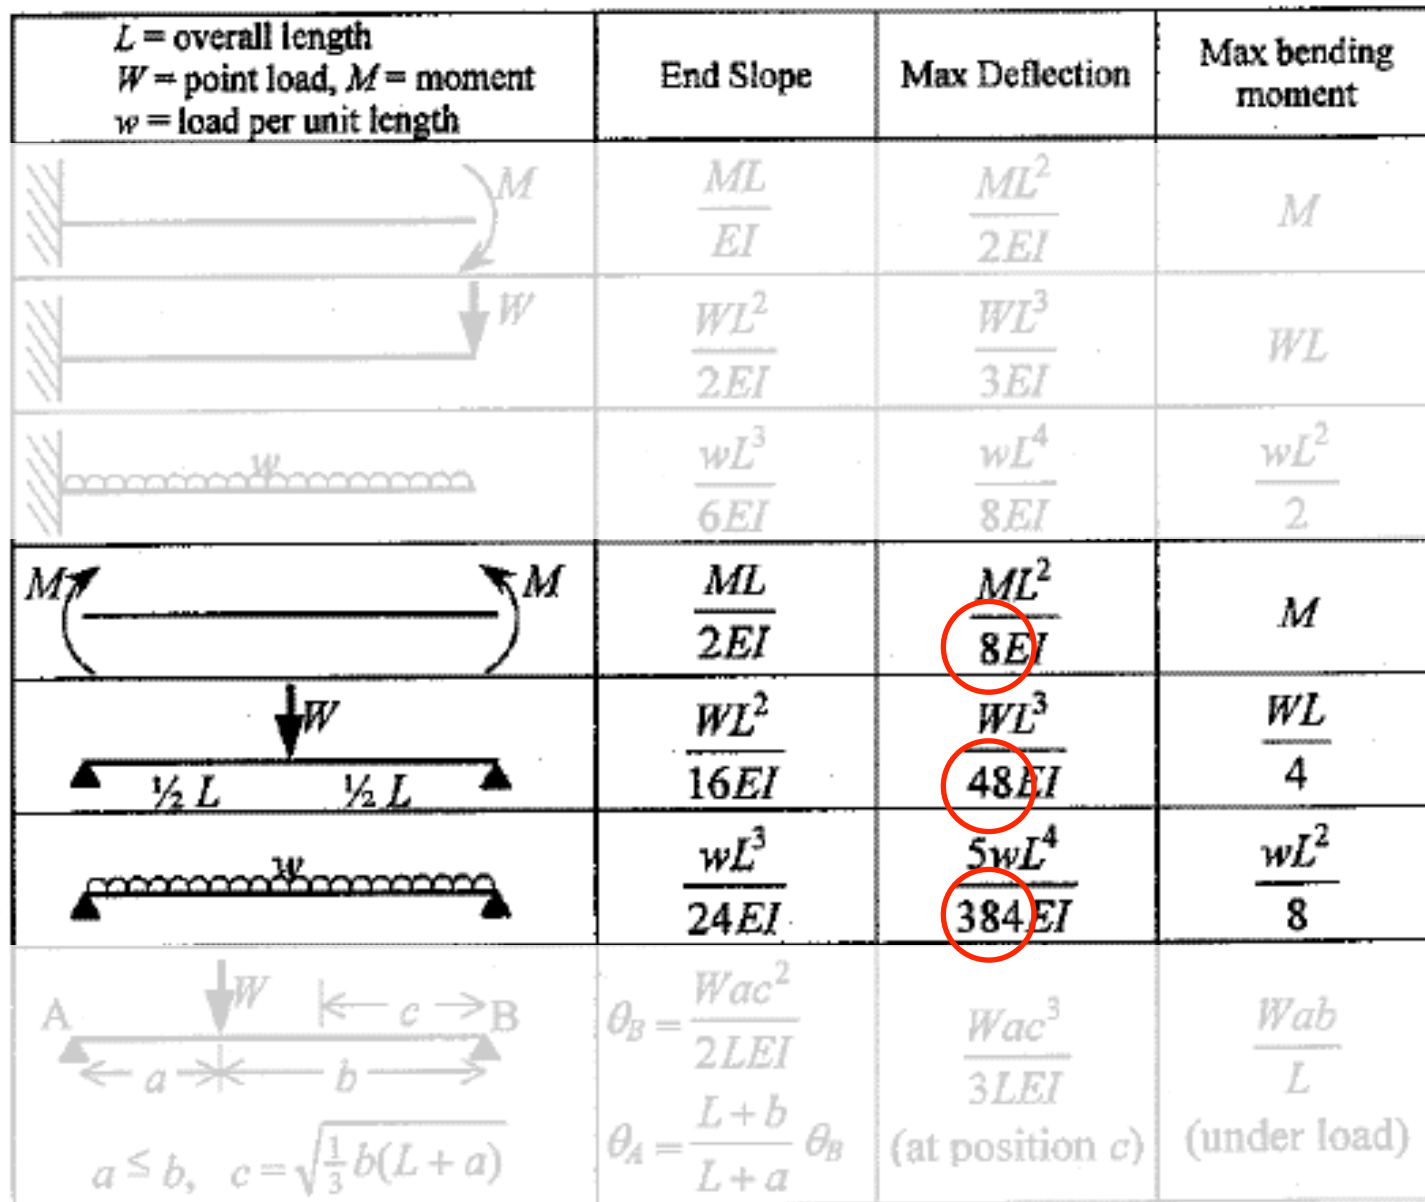 L = overall length
W = point load, M = moment
w = load per unit length
End Slope
Max Deflection
Max bending
moment
M
ML/EI
ML²/2EI
M
W
WL²/2EI
WL³/3EI
WL
w
wL³/6EI
wL⁴/8EI
wL²/2
M
M
ML/2EI
ML²/8EI
M
W
½ L
½ L
WL²/16EI
WL³/48EI
WL/4
w
wL³/24EI
5wL⁴/384EI
wL²/8
A
W
c
B
a
b
a ≤ b, c = √(⅓ b(L + a))
θ_B = Wac²/2LEI
θ_A = (L + b)/(L + a) θ_B
Wac³/3LEI
(at position c)
Wab/L
(under load)